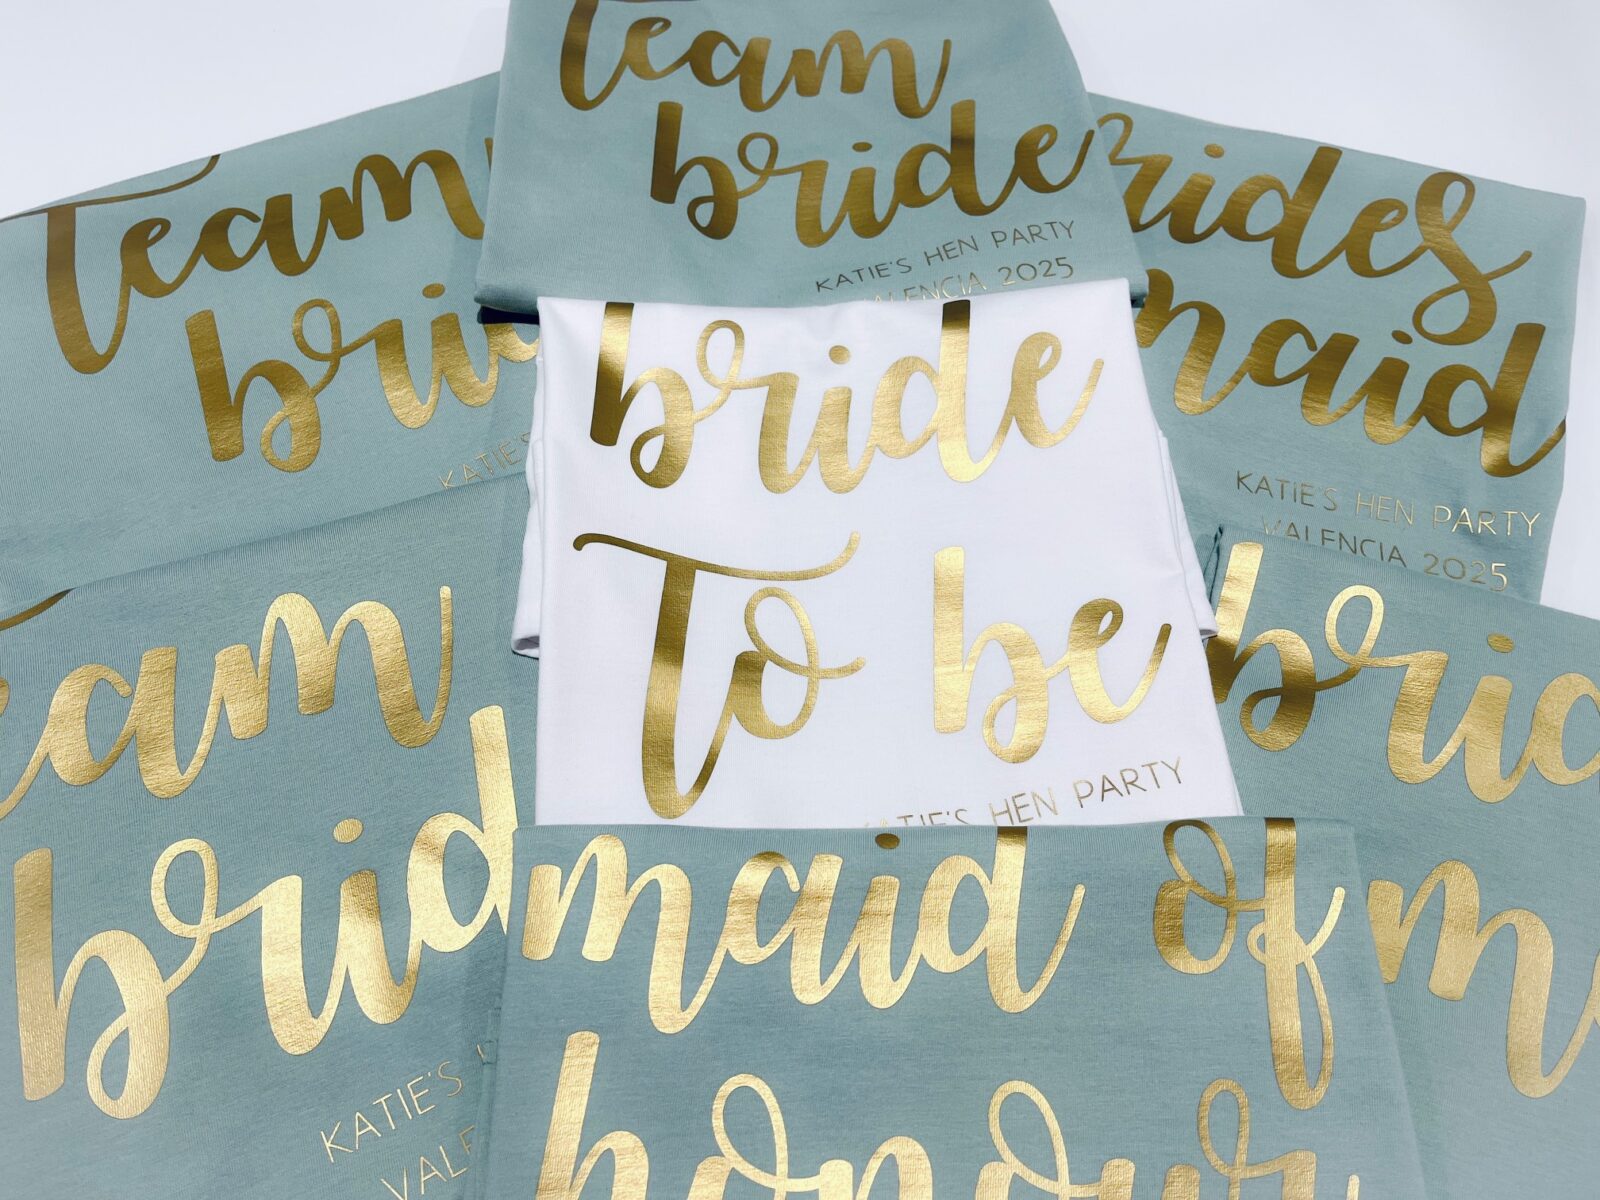 team
bride
KATIE'S HEN PARTY
VALENCIA 2025
team
KATIE'S
brides
maid
KATIE'S HEN PARTY
VALENCIA 2025
bride
To be
KATIE'S HEN PARTY
team
brid
KATIE'S
maid of
honour